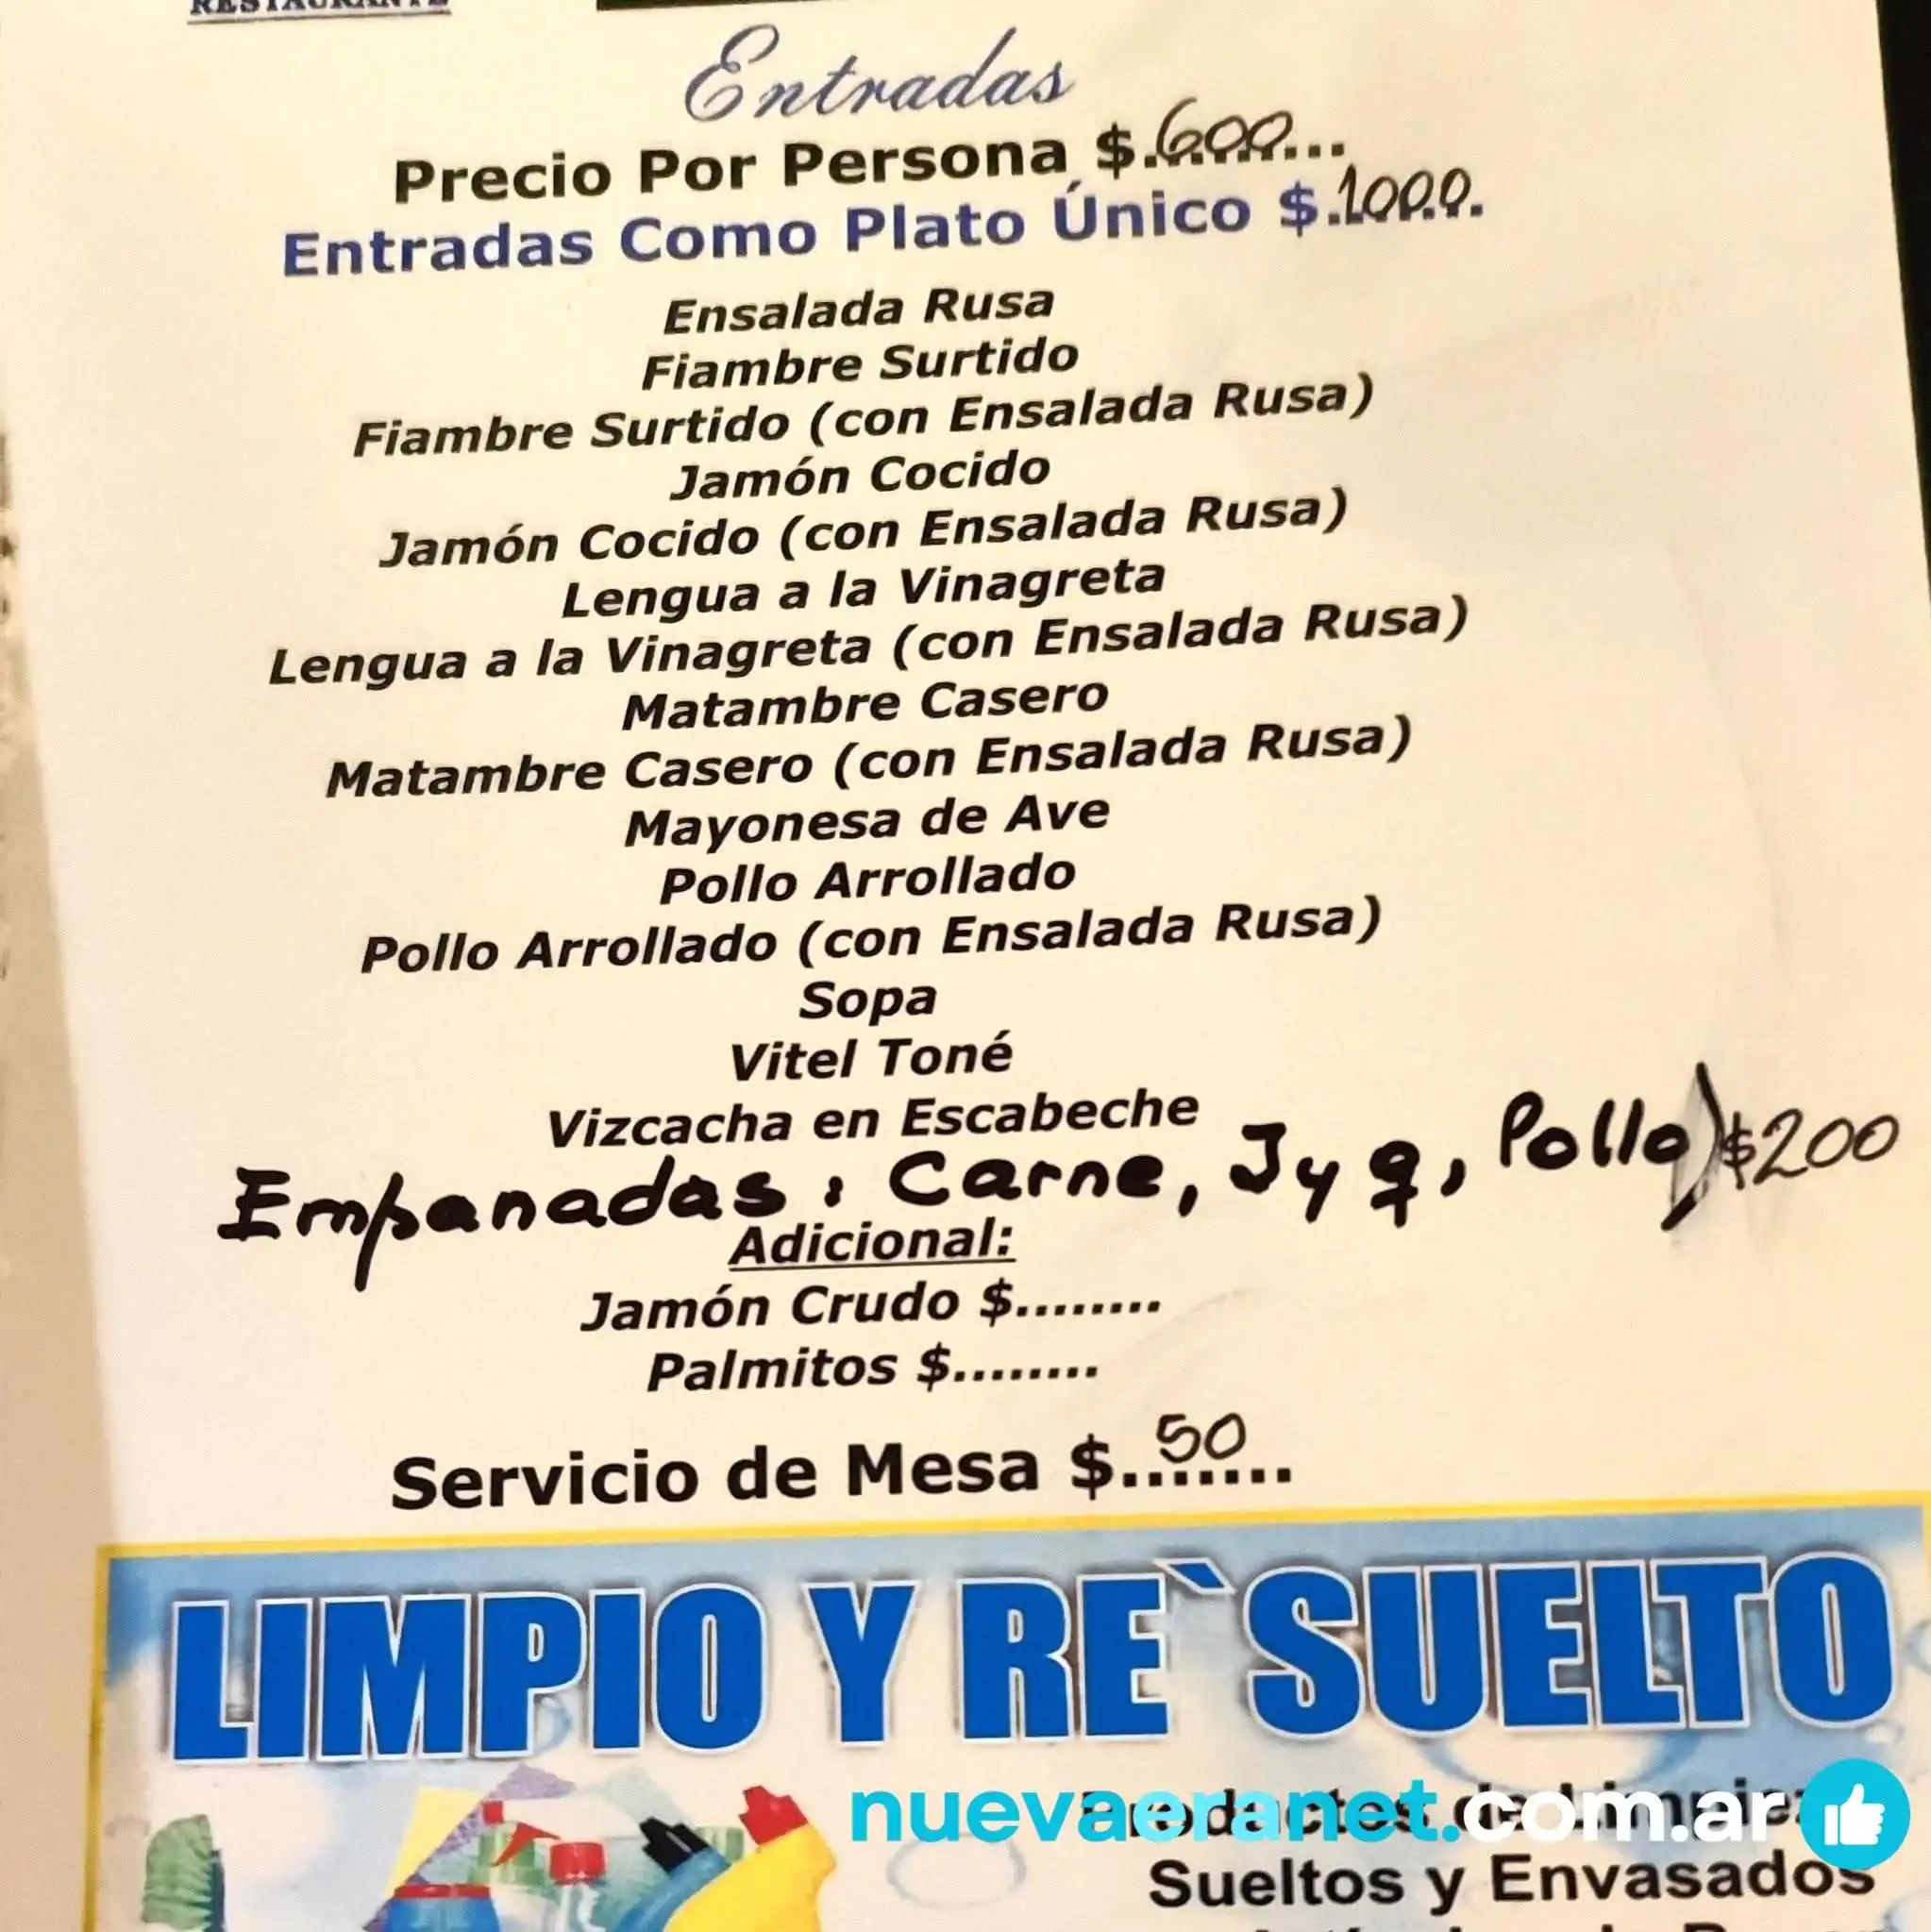 RESTAURANTE
Entradas
Precio Por Persona $.600...
Entradas Como Plato Único $.1000.
Ensalada Rusa
Fiambre Surtido
Fiambre Surtido (con Ensalada Rusa)
Jamón Cocido
Jamón Cocido (con Ensalada Rusa)
Lengua a la Vinagreta
Lengua a la Vinagreta (con Ensalada Rusa)
Matambre Casero
Matambre Casero (con Ensalada Rusa)
Mayonesa de Ave
Pollo Arrollado
Pollo Arrollado (con Ensalada Rusa)
Sopa
Vitel Toné
Vizcacha en Escabeche
Empanadas: Carne, J y q, Pollo) $200
Adicional:
Jamón Crudo $........
Palmitos $........
Servicio de Mesa $..50.....
LIMPIO Y RE`SUELTO
nuevaeranet.com.ar
Productos de
Sueltos y Envasados